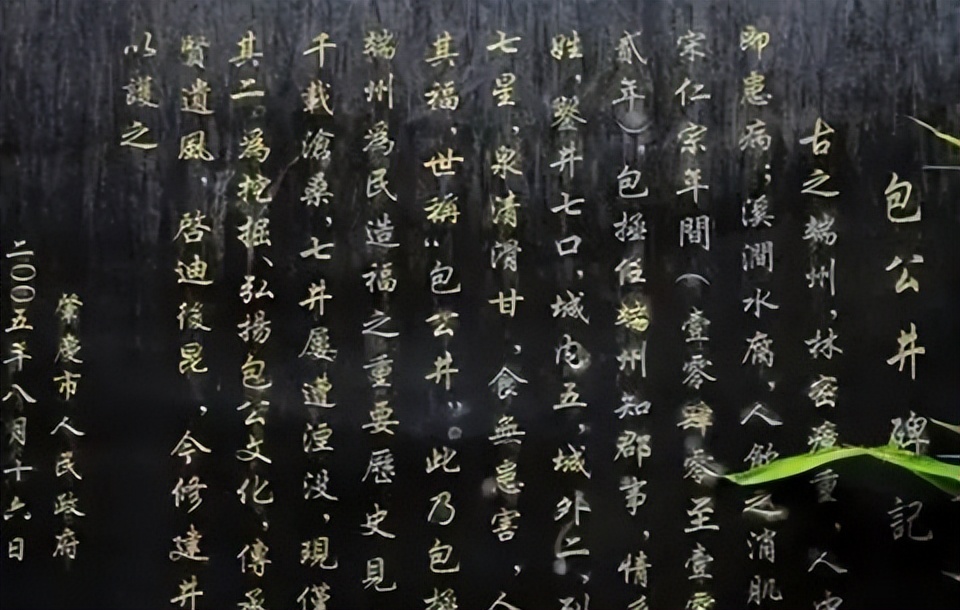 包公井碑記
古之端州，林密瘴重，人
即患病；溪澗水腐，人飲之消肌
宋仁宗年間（壹零肆零至壹零
貳年）包拯任端州知郡事，情
姓，鑿井七口，城内五，城外二，列
七星，泉清滑甘，食無患害，人
其福，世稱“包公井”。此乃包拯
端州爲民造福之重要歷史見
千載滄桑，七井屢遭湮没，現僅
其二。爲挖掘、弘揚包公文化，傳承
賢遺風 啓迪後昆，今修建井
以護之
肇慶市人民政府
二〇〇五年八月十六日